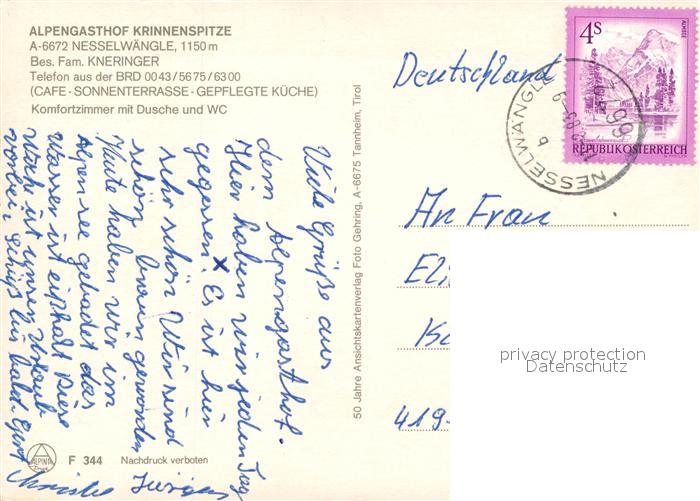 ALPENGASTHOF KRINNENSPITZE
A-6672 NESSELWÄNGLE, 1150 m
Bes. Fam. KNERINGER
Telefon aus der BRD 0043/5675/6300
(CAFE - SONNENTERRASSE - GEPFLEGTE KÜCHE)
Komfortzimmer mit Dusche und WC
Viele Grüße aus
dem Alpengasthof.
Hier haben wir jeden Tag
gegessen. Es ist hier
sehr schön. Wir sind
schön braun geworden
Heute haben wir im
Alpensee gebadet das
Wasser ist eiskalt diese
Woche ist unser Urlaub
vorbei. Tschüß bis bald.
Christel Jürgen
F 344 Nachdruck verboten
ALPINA
50 Jahre Ansichtskartenverlag Foto Gehring, A-6675 Tannheim, Tirol
Deutschland
4S
ALMSEE
REPUBLIK ÖSTERREICH
NESSELWÄNGLE
b
An Frau
419
privacy protection
Datenschutz